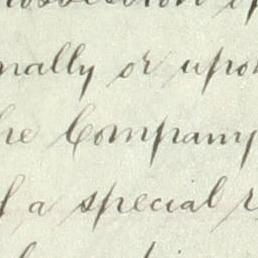 nally or upon
he Company
f a special r